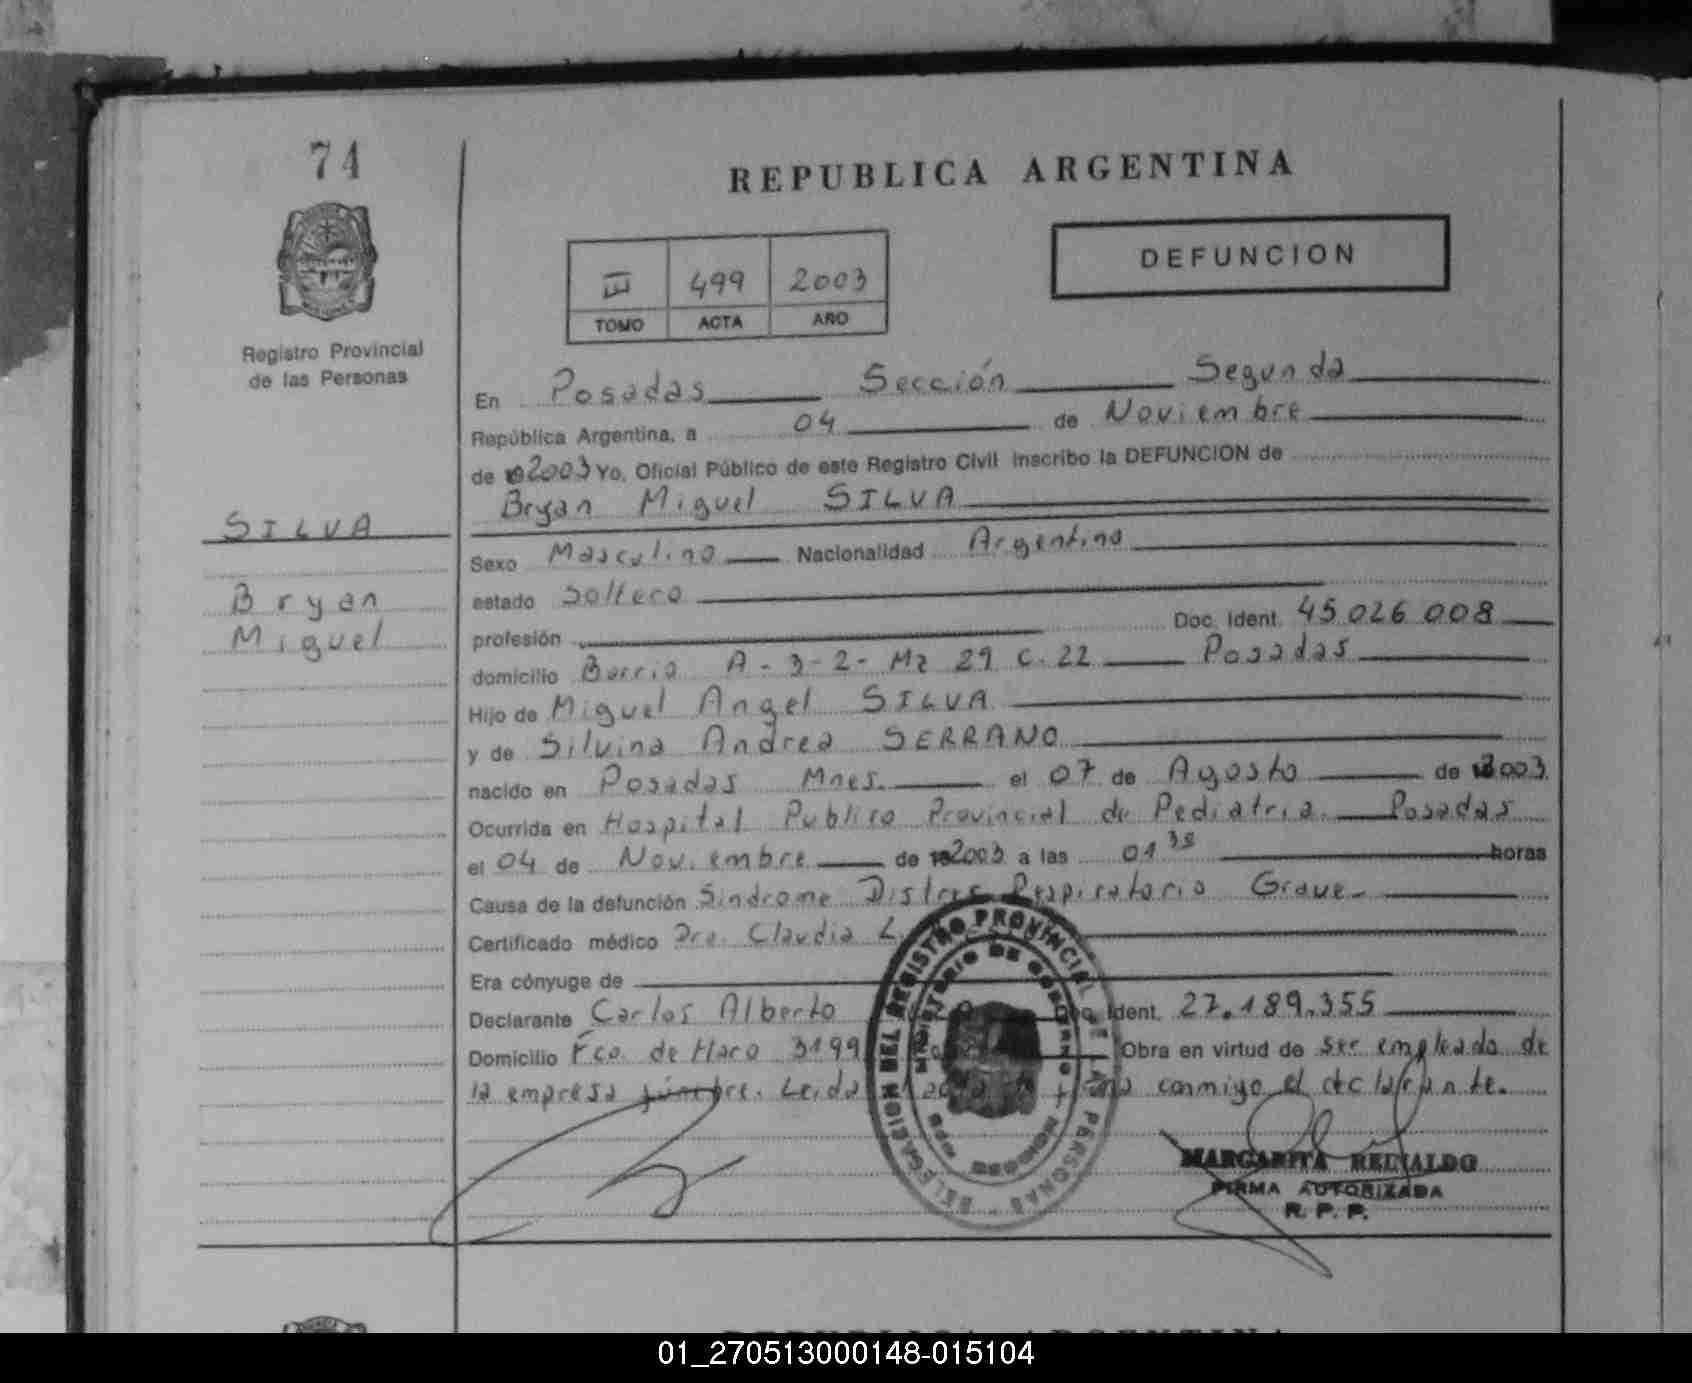 74
REPUBLICA ARGENTINA
DEFUNCION
III 499 2003
TOMO ACTA AÑO
Registro Provincial
de las Personas
En Posadas Sección Segunda
República Argentina, a 04 de Noviembre
de 2003 Yo, Oficial Público de este Registro Civil inscribo la DEFUNCION de
Bryan Miguel SILVA
SILVA
Bryan
Miguel
Sexo Masculino Nacionalidad Argentina
estado Soltero
profesión Doc. Ident. 45.026.008
domicilio Barrio A-3-2- Mz 29 C. 22 Posadas
Hijo de Miguel Angel SILVA
y de Silvina Andrea SERRANO
nacido en Posadas Mnes. el 07 de Agosto de 2003
Ocurrida en Hospital Publico Provincial de Pediatria. Posadas
el 04 de Noviembre de 2003 a las 01 horas
Causa de la defunción Sindrome Distres Respiratorio Grave
Certificado médico Dra. Claudia L.
Era cónyuge de
Declarante Carlos Alberto Doc. Ident. 27.189.355
Domicilio Fco. de Haro 3199 Obra en virtud de ser empleado de
la empresa fúnebre. Leida conmigo el declarante.
DELEGACION DEL REGISTRO PROVINCIAL DE LAS PERSONAS
MINISTERIO DE GOBIERNO
MARGARITA REINALDO
FIRMA AUTORIZADA
R. P. P.
REPUBLICA ARGENTINA
01_270513000148-015104